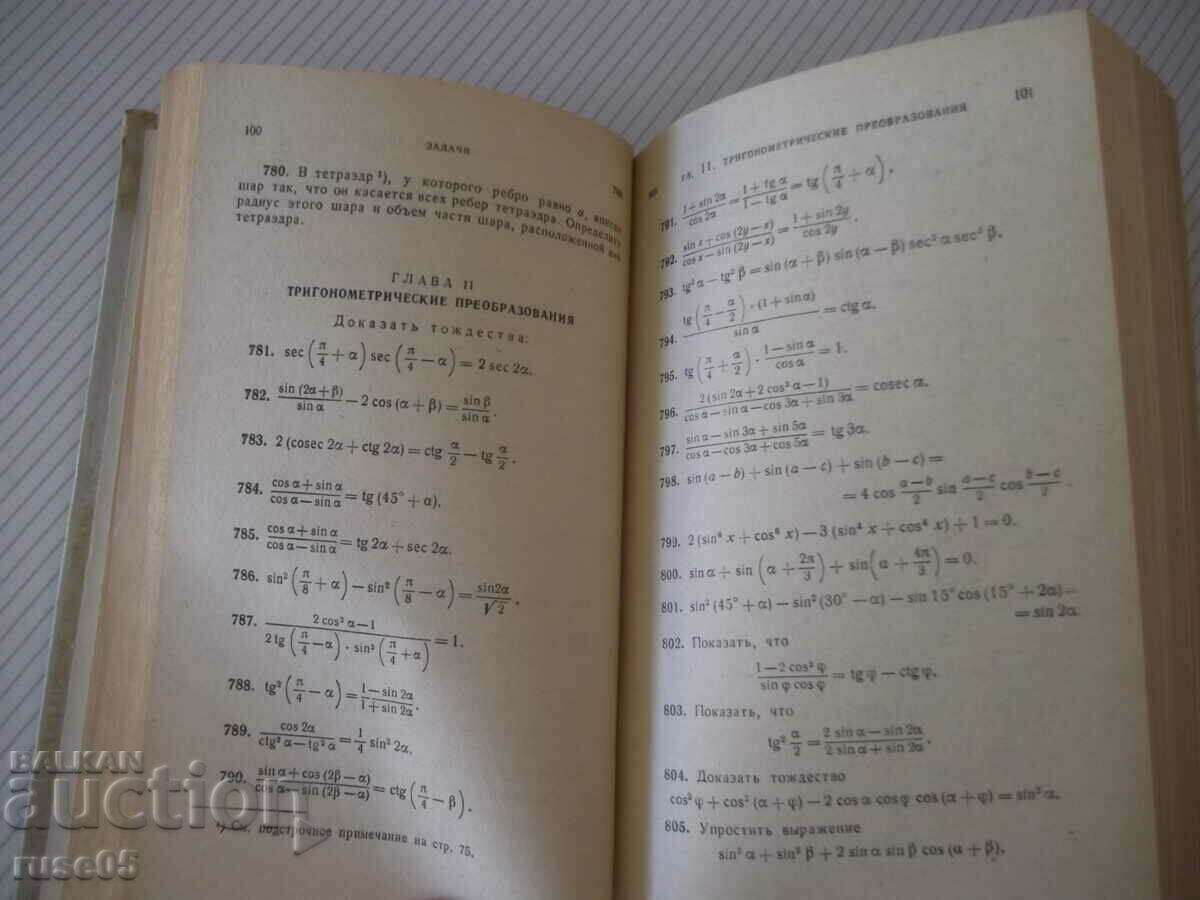 100
ЗАДАЧИ
780. В тетраэдр ¹), у которого ребро равно a, вписан
шар так, что он касается всех ребер тетраэдра. Определить
радиус этого шара и объем части шара, расположенной вне
тетраэдра.
ГЛАВА 11
ТРИГОНОМЕТРИЧЕСКИЕ ПРЕОБРАЗОВАНИЯ
Доказать тождества:
781. sec (π/4 + α) sec (π/4 − α) = 2 sec 2α.
782. sin (2α + β)/sin α − 2 cos (α + β) = sin β/sin α.
783. 2 (cosec 2α + ctg 2α) = ctg α/2 − tg α/2.
784. (cos α + sin α)/(cos α − sin α) = tg (45° + α).
785. (cos α + sin α)/(cos α − sin α) = tg 2α + sec 2α.
786. sin² (π/8 + α) − sin² (π/8 − α) = sin 2α/√2.
787. (2 cos² α − 1)/(2 tg (π/4 − α) · sin² (π/4 + α)) = 1.
788. tg² (π/4 − α) = (1 − sin 2α)/(1 + sin 2α).
789. cos 2α/(ctg² α − tg² α) = 1/4 sin² 2α.
790. (sin α + cos (2β − α))/(cos α − sin (2β − α)) = ctg (π/4 − β).
¹) См. подстрочное примечание на стр. 75.
ГЛ. 11. ТРИГОНОМЕТРИЧЕСКИЕ ПРЕОБРАЗОВАНИЯ
101
791. (1 + sin 2α)/cos 2α = (1 + tg α)/(1 − tg α) = tg (π/4 + α).
792. (sin x + cos (2y − x))/(cos x − sin (2y − x)) = (1 + sin 2y)/cos 2y.
793. tg² α − tg² β = sin (α + β) sin (α − β) sec² α sec² β.
794. tg (π/4 − α/2) · (1 + sin α)/sin α = ctg α.
795. tg (π/4 + α/2) · (1 − sin α)/cos α = 1.
796. 2 (sin 2α + 2 cos² α − 1)/(cos α − sin α − cos 3α + sin 3α) = cosec α.
797. (sin α − sin 3α + sin 5α)/(cos α − cos 3α + cos 5α) = tg 3α.
798. sin (a − b) + sin (a − c) + sin (b − c) =
= 4 cos (a − b)/2 sin (a − c)/2 cos (b − c)/2.
799. 2 (sin⁶ x + cos⁶ x) − 3 (sin⁴ x + cos⁴ x) + 1 = 0.
800. sin α + sin (α + 2π/3) + sin (α + 4π/3) = 0.
801. sin² (45° + α) − sin² (30° − α) − sin 15° cos (15° + 2α) =
= sin 2α.
802. Показать, что
(1 − 2 cos² φ)/(sin φ cos φ) = tg φ − ctg φ.
803. Показать, что
tg² α/2 = (2 sin α − sin 2α)/(2 sin α + sin 2α).
804. Доказать тождество
cos² φ + cos² (α + φ) − 2 cos α cos φ cos (α + φ) = sin² α.
805. Упростить выражение
sin² α + sin² β + 2 sin α sin β cos (α + β).
BALKAN
auction
ruse05